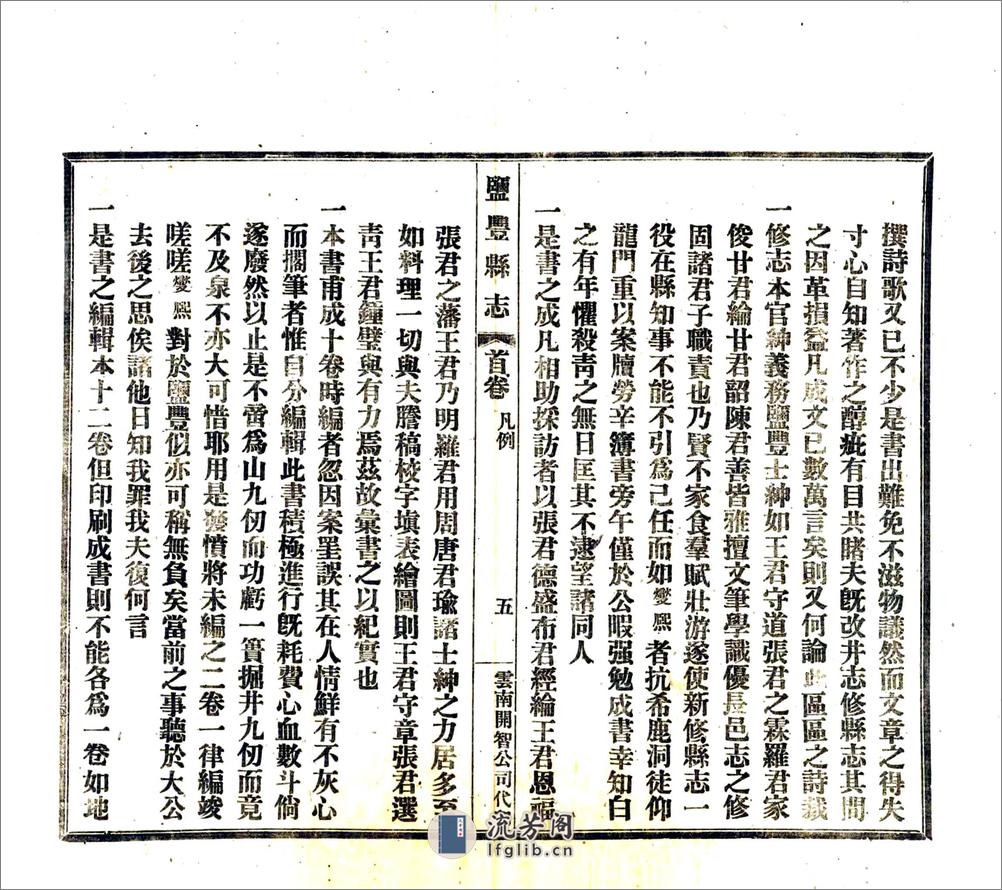 撰詩歌又已不少是書出難免不滋物議然而文章之得失
寸心自知著作之醇疵有目共睹夫既改井志修縣志其間
之因革損益凡成文已數萬言矣則又何論此區區之詩哉
一修志本官紳義務鹽豐士紳如王君守道張君之霖羅君家
俊甘君綸甘君韶陳君善皆雅擅文筆學識優長邑志之修
固諸君子職責也乃賢不家食羣賦壯游遂使新修縣志一
役在縣知事不能不引爲己任而如燮熙者抗希鹿洞徒仰
龍門重以案牘勞辛簿書旁午僅於公暇强勉成書幸知白
之有年懼殺靑之無日匡其不逮望諸同人
一是書之成凡相助採訪者以張君德盛布君經綸王君恩福
鹽豐縣志 首卷 凡例 五 雲南開智公司代
張君之藩王君乃明羅君用周唐君瑜諸士紳之力居多至
如料理一切與夫謄稿校字塡表繪圖則王君守章張君選
靑王君鐘璧與有力焉茲故彙書之以紀實也
一本書甫成十卷時編者忽因案罣誤其在人情鮮有不灰心
而擱筆者惟自分編輯此書積極進行旣耗費心血數斗倘
遂廢然以止是不啻爲山九仞而功虧一簣掘井九仞而竟
不及泉不亦大可惜耶用是發憤將未編之二卷一律編竣
嗟嗟燮熙對於鹽豐似亦可稱無負矣當前之事聽於大公
去後之思俟諸他日知我罪我夫復何言
一是書之編輯本十二卷但印刷成書則不能各爲一卷如地
流芳阁
lfglib.cn